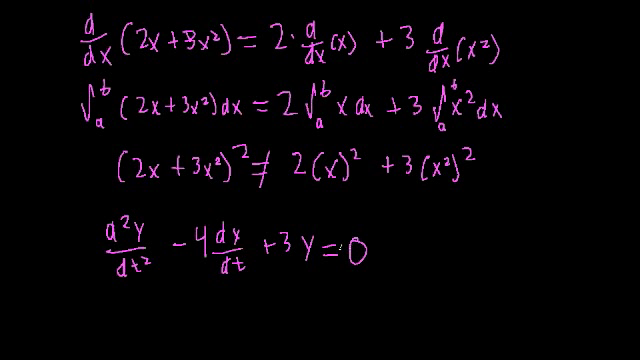 d/dx (2x + 3x²) = 2 · d/dx (x) + 3 d/dx (x²)
∫ₐᵇ (2x + 3x²) dx = 2 ∫ₐᵇ x dx + 3 ∫ₐᵇ x² dx
(2x + 3x²)² ≠ 2(x)² + 3(x²)²
d²y/dt² - 4 dx/dt + 3y = 0